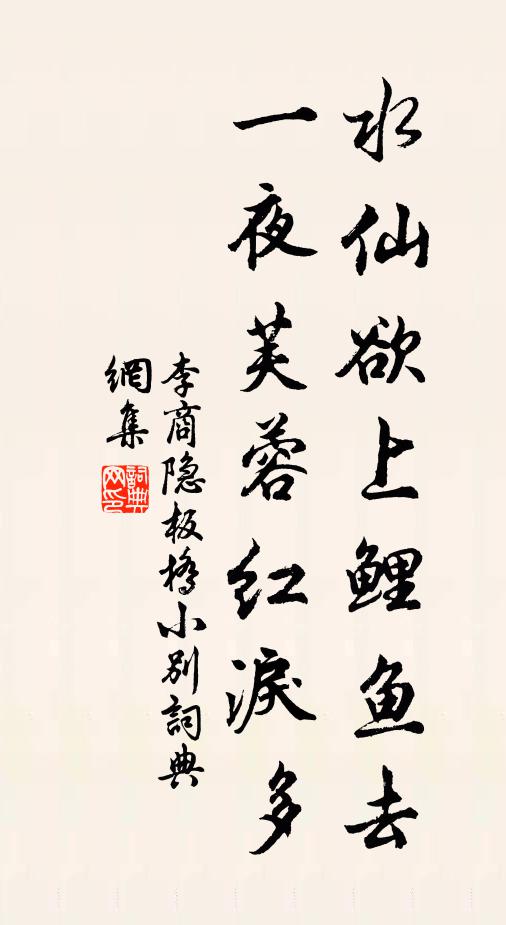 水仙欲上鲤鱼去
一夜芙蓉红淚多
李商隐板橋小别詞典
網集
詞典网印